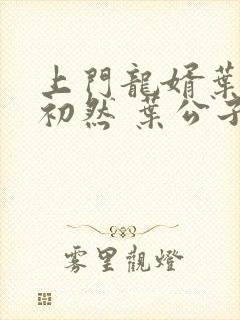 上門龍婿葉
初然 葉公子
雾里觀燈